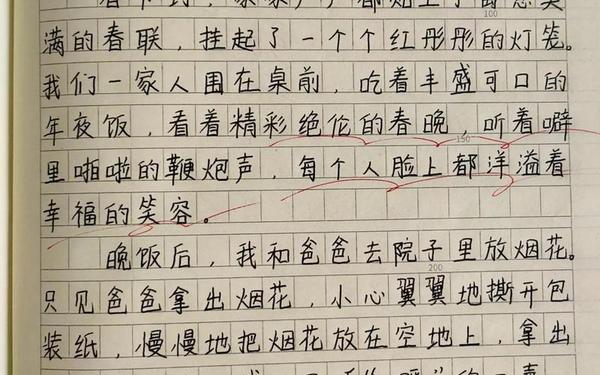 春节到，家家户户都贴上了寓意美
满的春联，挂起了一个个红彤彤的灯笼。
100
我们一家人围在桌前，吃着丰盛可口的
年夜饭，看着精彩绝伦的春晚，听着噼
150
里啪啦的鞭炮声，每个人脸上都洋溢着
幸福的笑容。
晚饭后，我和爸爸去院子里放烟花。
200
只见爸爸拿出烟花，小心翼翼地撕开包
装纸，慢慢地把烟花放在空地上，拿出